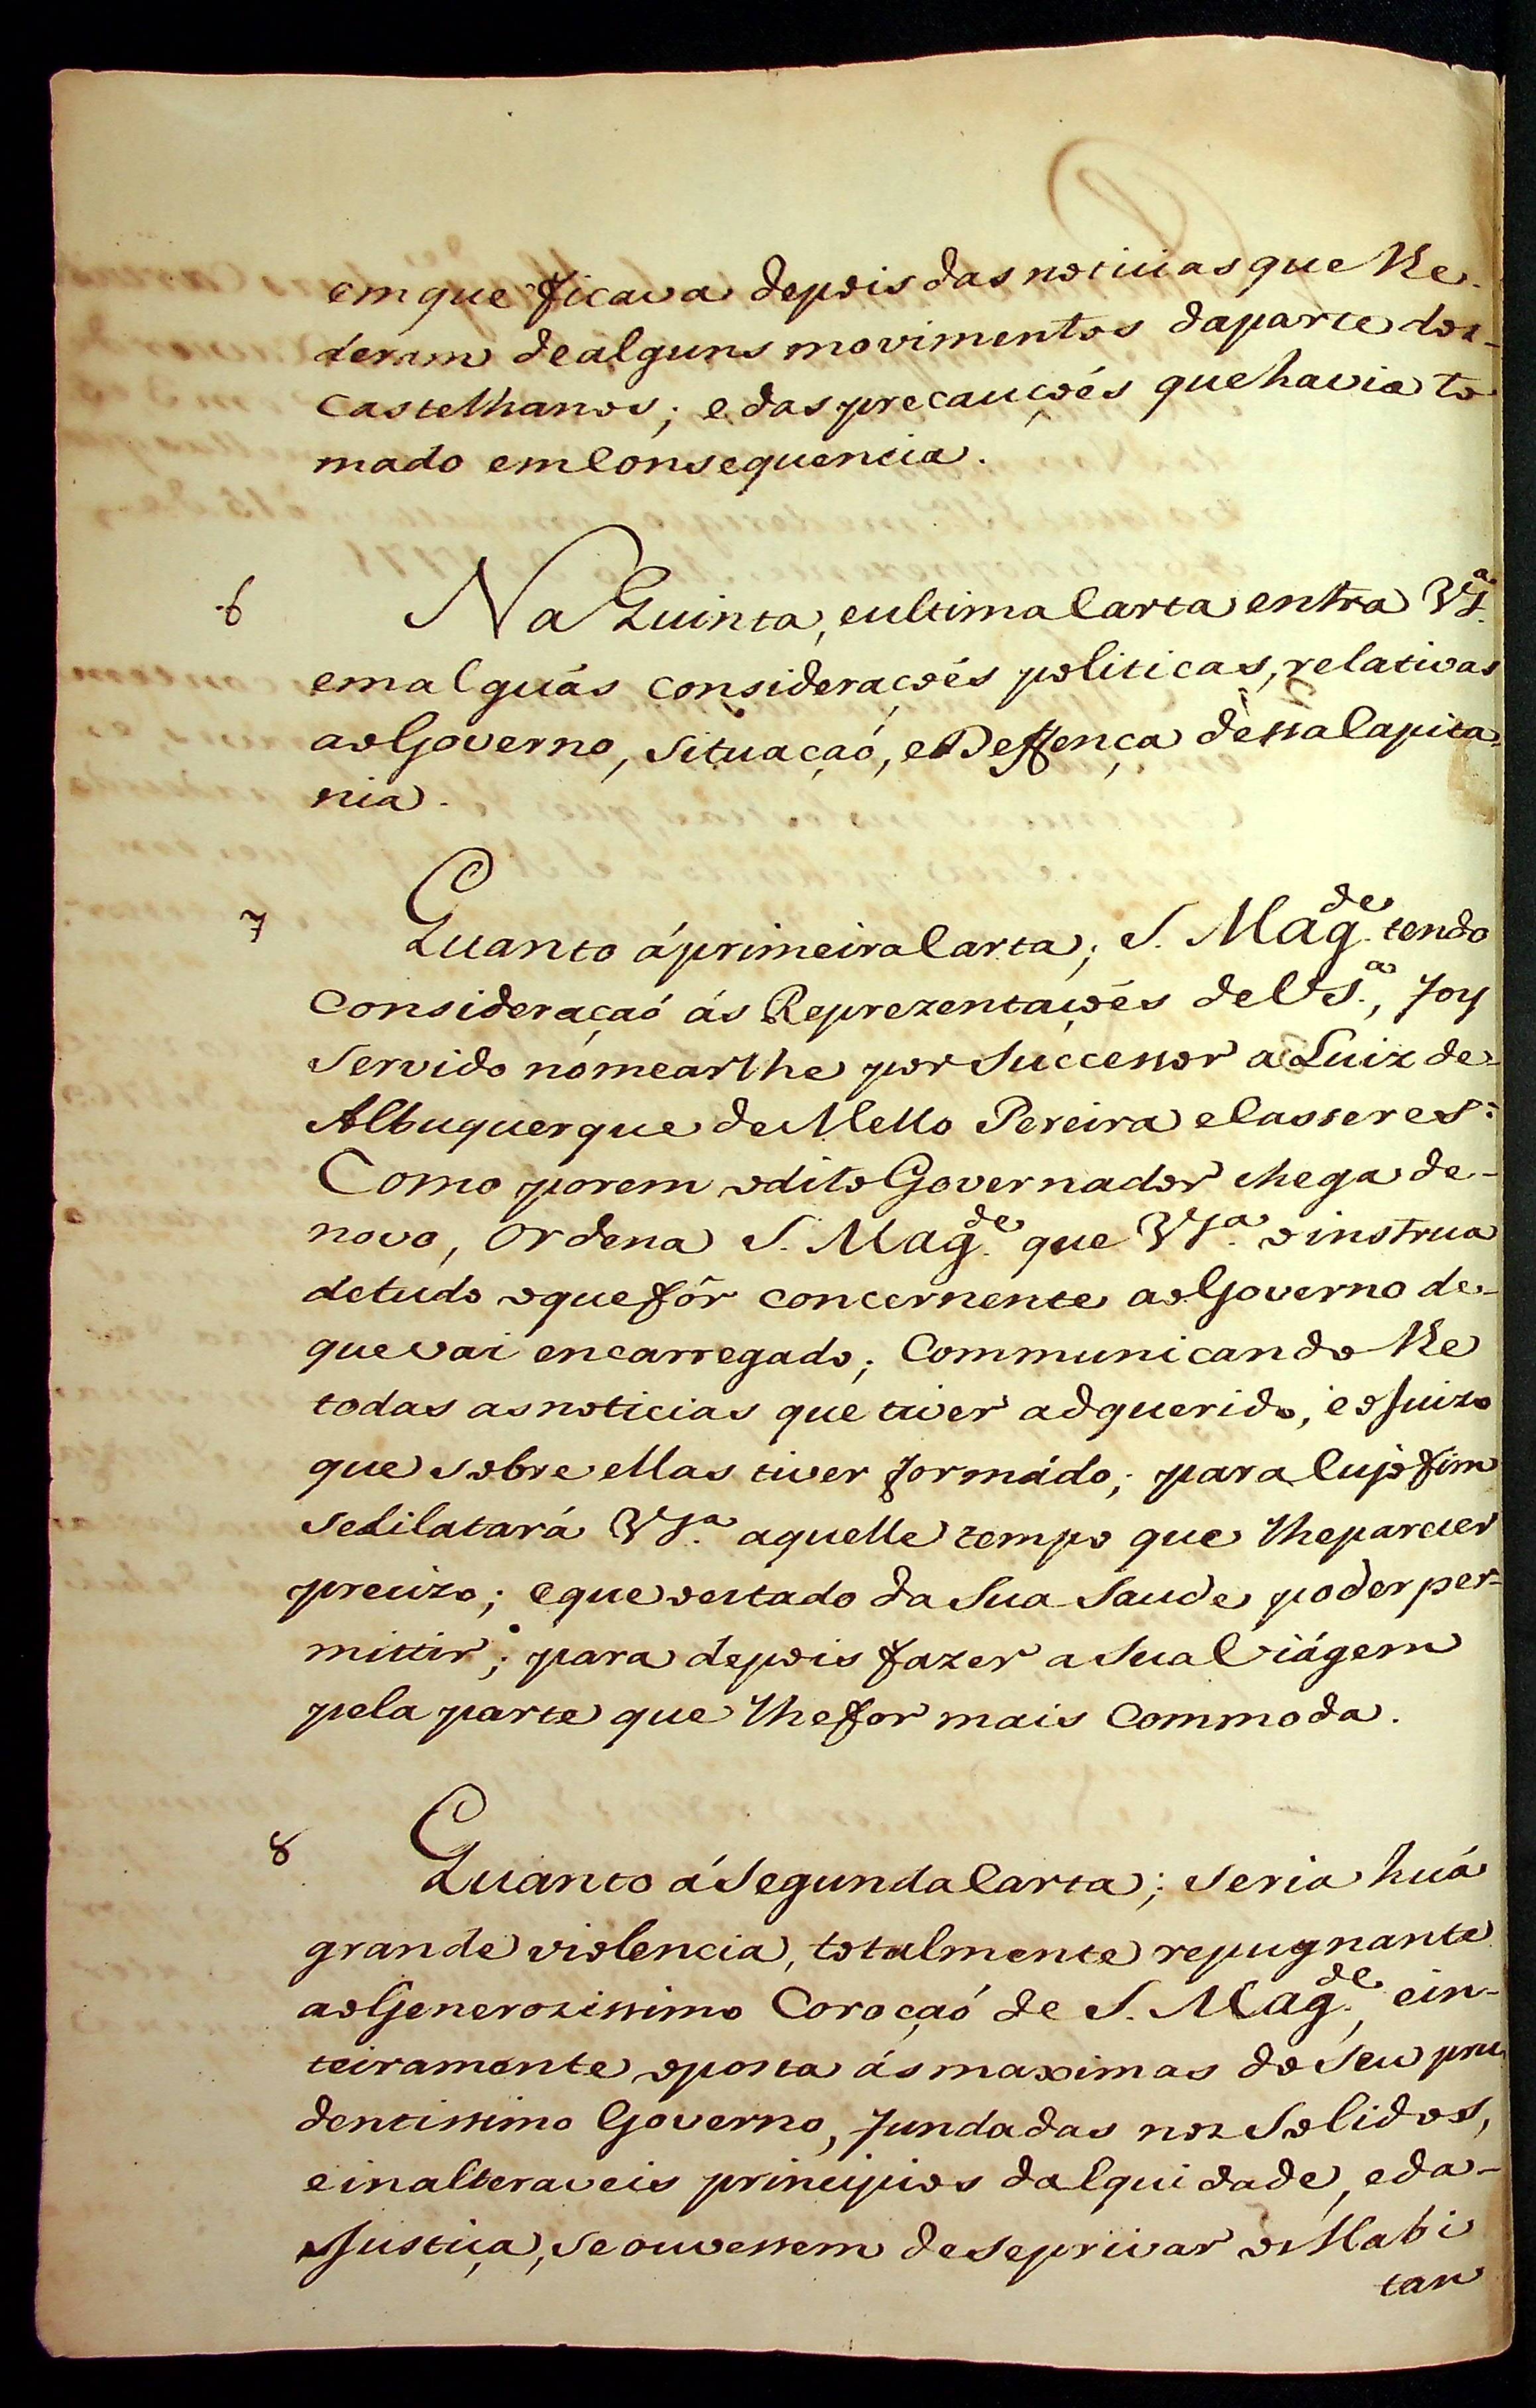 em que ficava depois das noticias que lhe
deram de alguns movimentos da parte dos
Castelhanos; e das precauçoés que havia to
mado em Consequencia.
6 Na Quinta, e ultima Carta entra VS.ª
em alguás consideraçoés politicas, relativas
ao Governo, Situaçaó, e Deffença dessa Capita
nia.
7 Quanto á primeira Carta; S. Mag.de tendo
Consideraçaó ás Reprezentaçoés de VS.ª, foy
Servido nomearlhe por Successor a Luiz de
Albuquerque de Mello Pereira e Casseres:
Como porem o dito Governador chega de
novo, Ordena S. Mag.de que VS.ª o instrua
de tudo o que fôr concernente ao Governo de
que vai encarregado; Communicando lhe
todas as noticias que tiver adquerido, e o Juizo
que sobre ellas tiver formádo; para Cujo fim
se dilatará VS.ª aquelle tempo que lhe parecer
precizo; e que o estado da Sua Saude poder per-
mittir; para depois fazer a Sua Viágem
pela parte que lhe for mais Commoda.
8 Quanto á Segunda Carta; Seria huá
grande violencia, totalmente repugnante
ao Generozissimo Coroçaó de S. Mag.de, e in-
teiramente oposta ás maximas do Seu pru
dentissimo Governo, fundadas nos Solidos,
e inalteraveis principios da Equidade, e da
Justiça, se ouvessem de se privar os Habi
tan